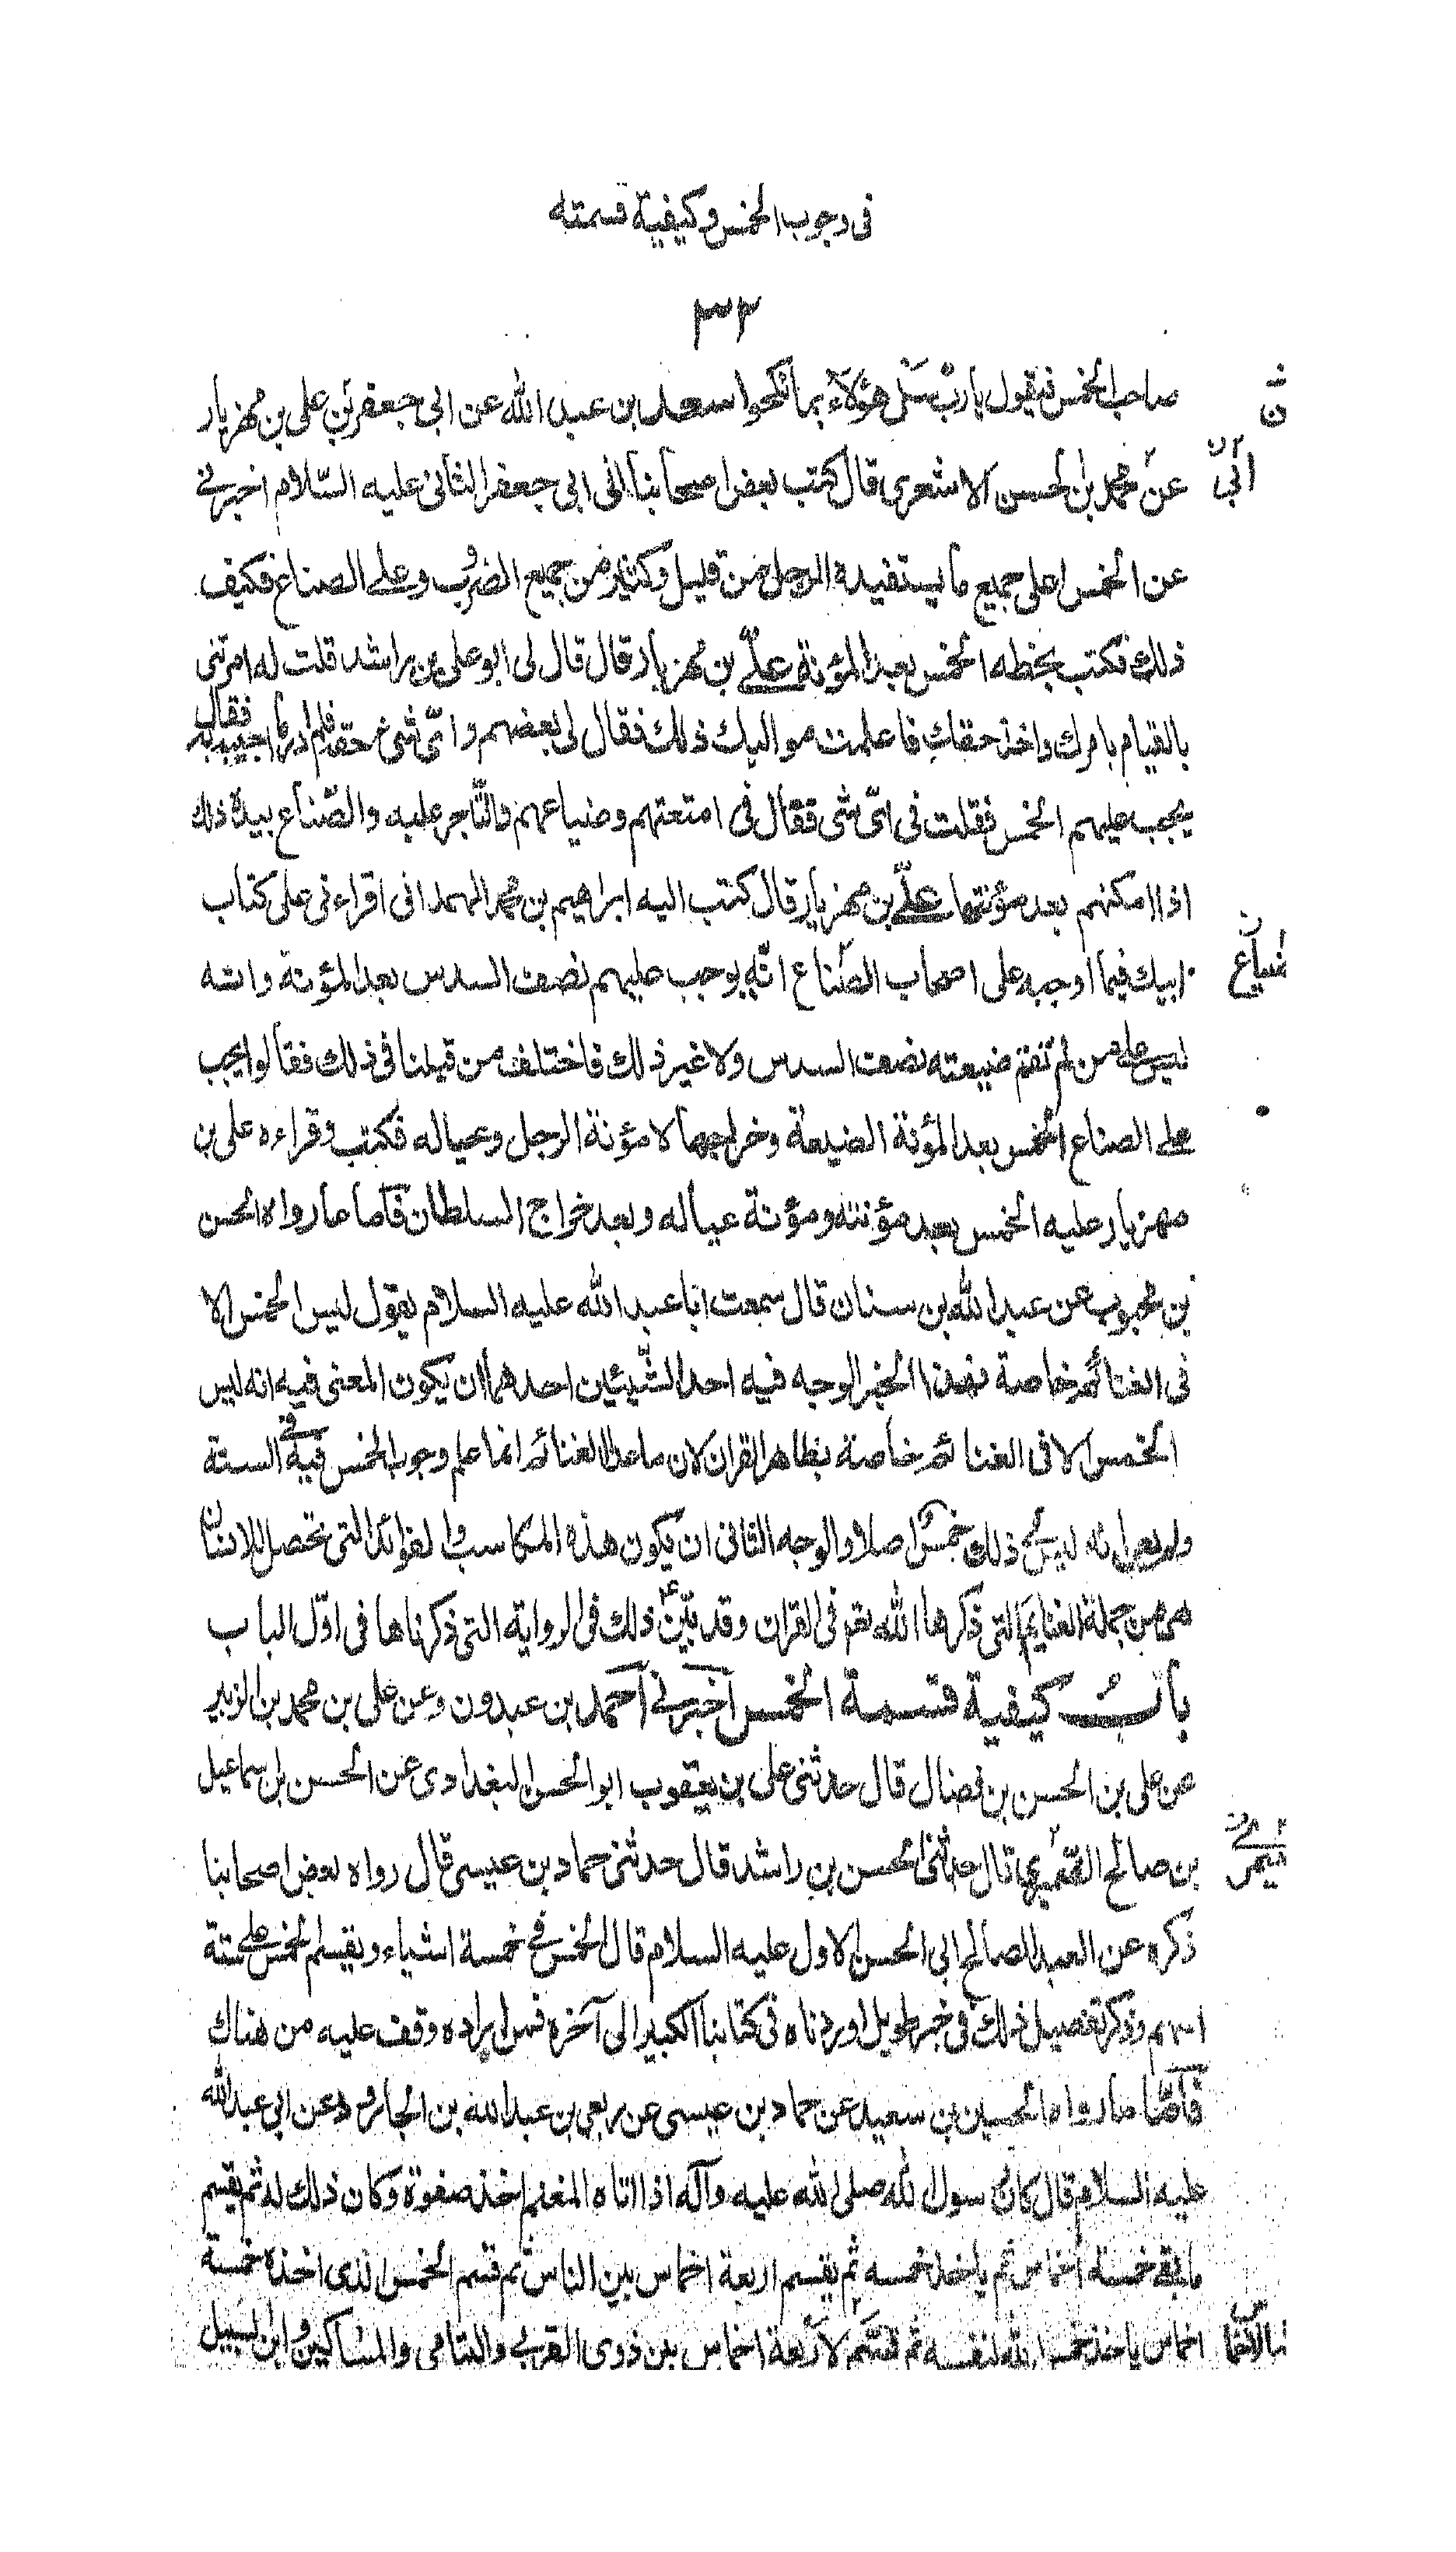 فى وجوب الخمس وكيفية قسمته
٣٣
صاحب الخمس فيقول يا رب سل هؤلاء بما نكحوا سعد بن عبد الله عن ابى جعفر عن على بن مهزيار
عن محمد بن الحسن الاشعرى قال كتب بعض اصحابنا الى ابى جعفر الثانى عليه السّلام اخبرنى
عن الخمس اعلى جميع ما يستفيده الرجل من قليل وكثير من جميع الضروب وعلى الصناع فكيف
ذلك فكتب بخطه الخمس بعد المؤنة علىّ بن مهزيار قال قال لى ابو على بن راشد قلت له امرتنى
بالقيام بامرك واخذ حقك فاعلمت مواليك ذلك فقال لى بعضهم واىّ شئ حقه فلم ادر ما اجيبه به فقال
يجب عليهم الخمس فقلت فى اىّ شى فقال فى امتعتهم وضياعهم والتّاجر عليه والصّناع بيده ذلك
اذا امكنهم بعد مؤنتهم علىّ بن مهزيار قال كتب اليه ابراهيم بن محمد الهمدانى اقراءنى على كتاب
ابيك فيما اوجبه على اصحاب الضياع انّه يوجب عليهم نصف السدس بعد المؤنة وانه
ليس على من لم تقم ضيعته نصف السدس ولا غير ذلك فاختلف من قبلنا فى ذلك فقالوا يجب
على الصناع الخمس بعد المؤنة الضيعة وخراجها لا مؤنة الرجل وعياله فكتب وقراءه على بن
مهزيار عليه الخمس بعد مؤنته ومؤنة عياله وبعد خراج السلطان فاما ما رواه الحسن
بن محبوب عن عبد الله بن سنان قال سمعت ابا عبد الله عليه السلام يقول ليس الخمس الا
فى الغنائم خاصة فهذا الخبر الوجه فيه احد الشّيئين احدهما ان يكون المعنى فيه انه ليس
الخمس الا فى الغنائم خاصة بظاهر القران لان ما عدا الغنائم انما علم وجوب الخمس فيه فى السنة
ولم يعن انه ليس فى ذلك خمس اصلا والوجه الثانى ان يكون هذه المكاسب والفوائد التى تحصل للانسان
هى من جملة الغنايم التى ذكرها الله تعم فى القران وقد بيّن ذلك فى الرواية التى ذكرناها فى اوّل الباب
باب كيفية قسمة الخمس اخبرنى احمد بن عبدون وعن على بن محمد بن الزبير
عن على بن الحسن بن فضال قال حدثنى على بن يعقوب ابو الحسن البغدادى عن الحسن بن اسماعيل
بن صالح الصميرى قال حدثنى الحسن بن راشد قال حدثنى حماد بن عيسى قال رواه بعض اصحابنا
ذكره عن العبد الصالح ابى الحسن الاول عليه السلام قال الخمس فى خمسة اشياء ويقسم الخمس على ستة
اسهم وذكر تفصيل ذلك فى خبر طويل اوردناه فى كتابنا الكبير الى آخره فمن اراده وقف عليه من هناك
فامّا ما رواه الحسين بن سعيد عن حماد بن عيسى عن ربعى بن عبد الله بن الجارود عن ابى عبد الله
عليه السلام قال كان رسول الله صلى الله عليه وآله اذا اتاه المغنم اخذ صفوة وكان ذلك له ثم يقسم
ما بقى خمسة اخماس ثم ياخذ خمسه ثم يقسم اربعة اخماس بين الناس ثم قسم الخمس الذى اخذه خمسة
اخماس ياخذ خمس الله لنفسه ثم قسم لاربعة اخماس بين ذوى القربى واليتامى والمساكين وابن السبيل